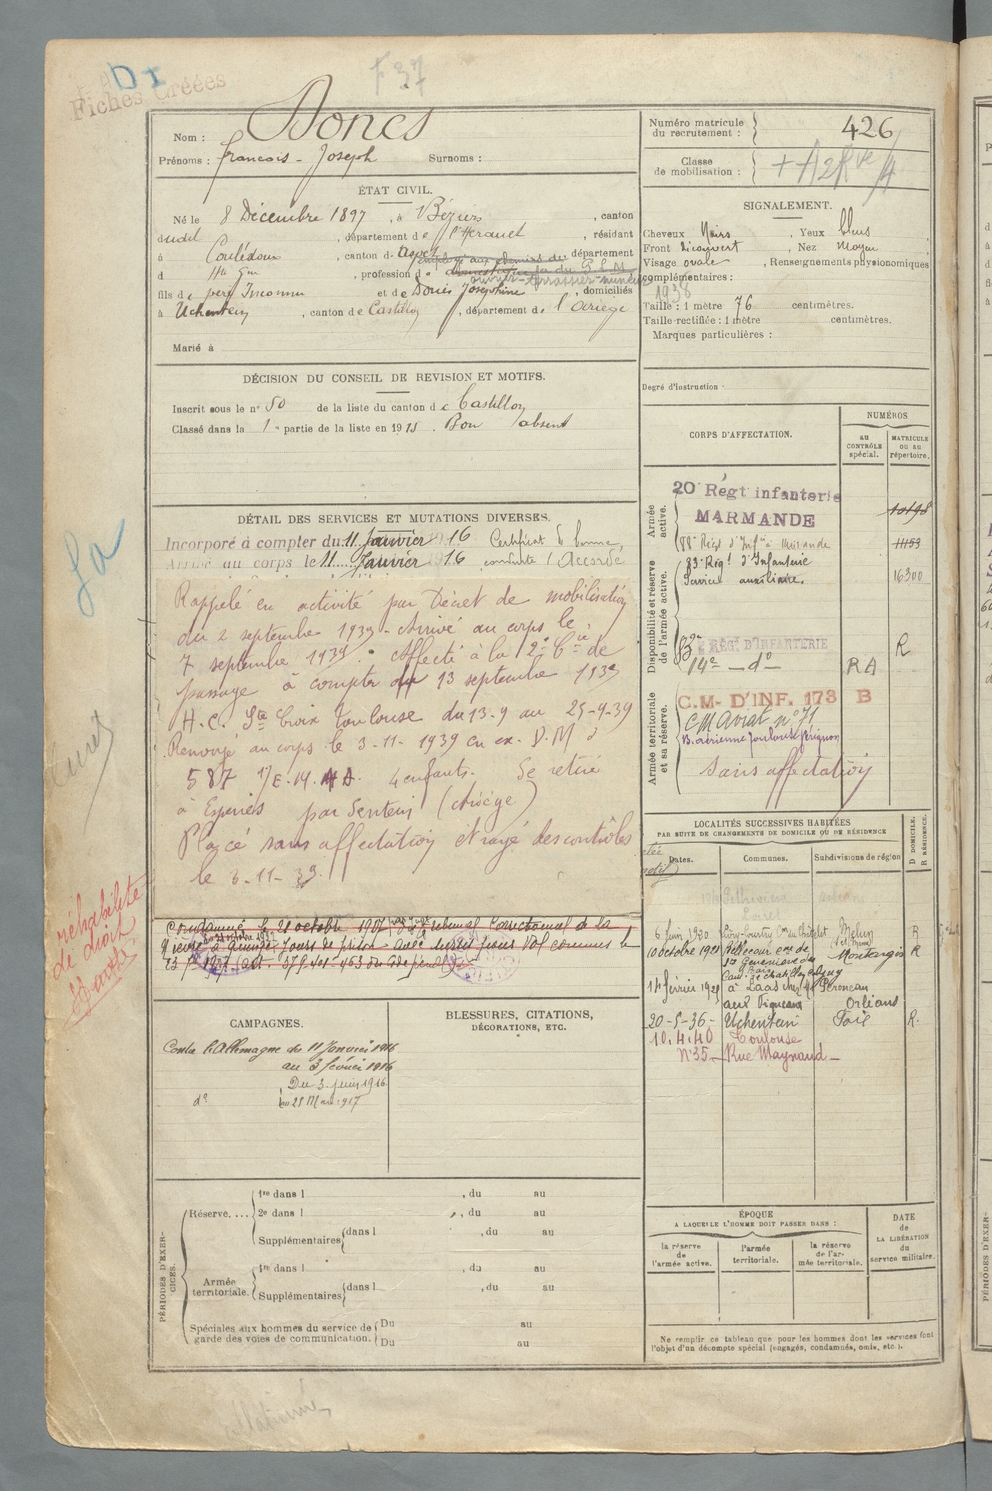 Fiches Créées
F 37
Nom : Doncs
Prénoms : François - Joseph Surnoms :
Numéro matricule du recrutement : 426
Classe de mobilisation :
ÉTAT CIVIL.
Né le 8 Décembre 1897, à Béziers, canton
dudit, département de l'Hérault, résidant
à Couledoux, canton d Aspet département
d Hte Gne, profession d
fils de père Inconnu et de Joséphine, domiciliés
à Uchentein, canton de Castillon, département de l'Ariège
Marié à
SIGNALEMENT.
Cheveux Noirs Yeux bleus
Front découvert, Nez Moyen
Visage ovale, Renseignements physionomiques
complémentaires :
1938
Taille : 1 mètre 76 centimètres.
Taille rectifiée : 1 mètre centimètres.
Marques particulières :
Degré d'instruction
DÉCISION DU CONSEIL DE REVISION ET MOTIFS.
Inscrit sous le n° 50 de la liste du canton de Castillon
Classé dans la 1e partie de la liste en 191 . Bon absent
CORPS D'AFFECTATION.
NUMÉROS
AU CONTRÔLE spécial.
MATRICULE OU AU répertoire.
Armée active.
20e Régt infanterie
MARMANDE
10198
88e Régt d'Infie à Mirande
11153
Disponibilité et réserve de l'armée active.
83e Régt d'Infanterie
Service auxiliaire.
16300
RÉGT D'INFANTERIE
R
14e — do —
R A
Armée territoriale et sa réserve.
C.M. D'INF. 173 B
CM Aviat n° 71
B. aérienne Toulouse
Sans affectation
DÉTAIL DES SERVICES ET MUTATIONS DIVERSES.
Incorporé à compter du 11 Janvier 1916 Certificat de bonne
Arrivé au corps le 11 Janvier 1916 conduite "Accordé"
Rappelé en activité par Décret de mobilisation
du 2 septembre 1939 - Arrivé au corps le
7 septembre 1939. Affecté à la 2e Cie de
passage à compter du 13 septembre 1939
H.C. Ste Croix Toulouse du 13-9 au 25-9-39
Renvoyé au corps le 3-11-1939 en ex. D.M.
587 4 enfants. Se retire
à par Sentein (Ariège)
Placé sans affectation et rayé des contrôles
le 3-11-39.
réhabilité
de droit
Condamné le 21 octobre 1927 par le tribunal correctionnel de la
à quinze jours de prison avec sursis pour vol commis le
1927 (art. 379-401-463 du Code pénal)
LOCALITÉS SUCCESSIVES HABITÉES
PAR SUITE DE CHANGEMENTS DE DOMICILE OU DE RÉSIDENCE
Dates.
Communes.
Subdivisions de région
D DOMICILE.
R RÉSIDENCE.
Pithiviers
Loiret
6 Juin 1920 Melun R
10 octobre 1921 Montargis R
14 février 1928 à Laas
Orléans
20-5-36- Uchentein Foix R.
10.4.40 Toulouse
N° 35 - Rue Maynard -
CAMPAGNES.
Contre l'Allemagne du 11 Janvier 1916
au 3 février 1916
do Du 3 juin 1916
au 21 Mars 1917
BLESSURES, CITATIONS,
DÉCORATIONS, ETC.
PÉRIODES D'EXERCICES.
Réserve.... 1re dans l , du au
2e dans l , du au
Supplémentaires dans l , du au
Armée territoriale. 1re dans l , du au
Supplémentaires dans l , du au
Spéciales aux hommes du service de garde des voies de communication. Du au
Du au
ÉPOQUE
A LAQUELLE L'HOMME DOIT PASSER DANS :
la réserve de l'armée active.
l'armée territoriale.
la réserve de l'armée territoriale.
DATE
de
LA LIBÉRATION
du
service militaire.
Ne remplir ce tableau que pour les hommes dont les services font
l'objet d'un décompte spécial (engagés, condamnés, omis, etc.).